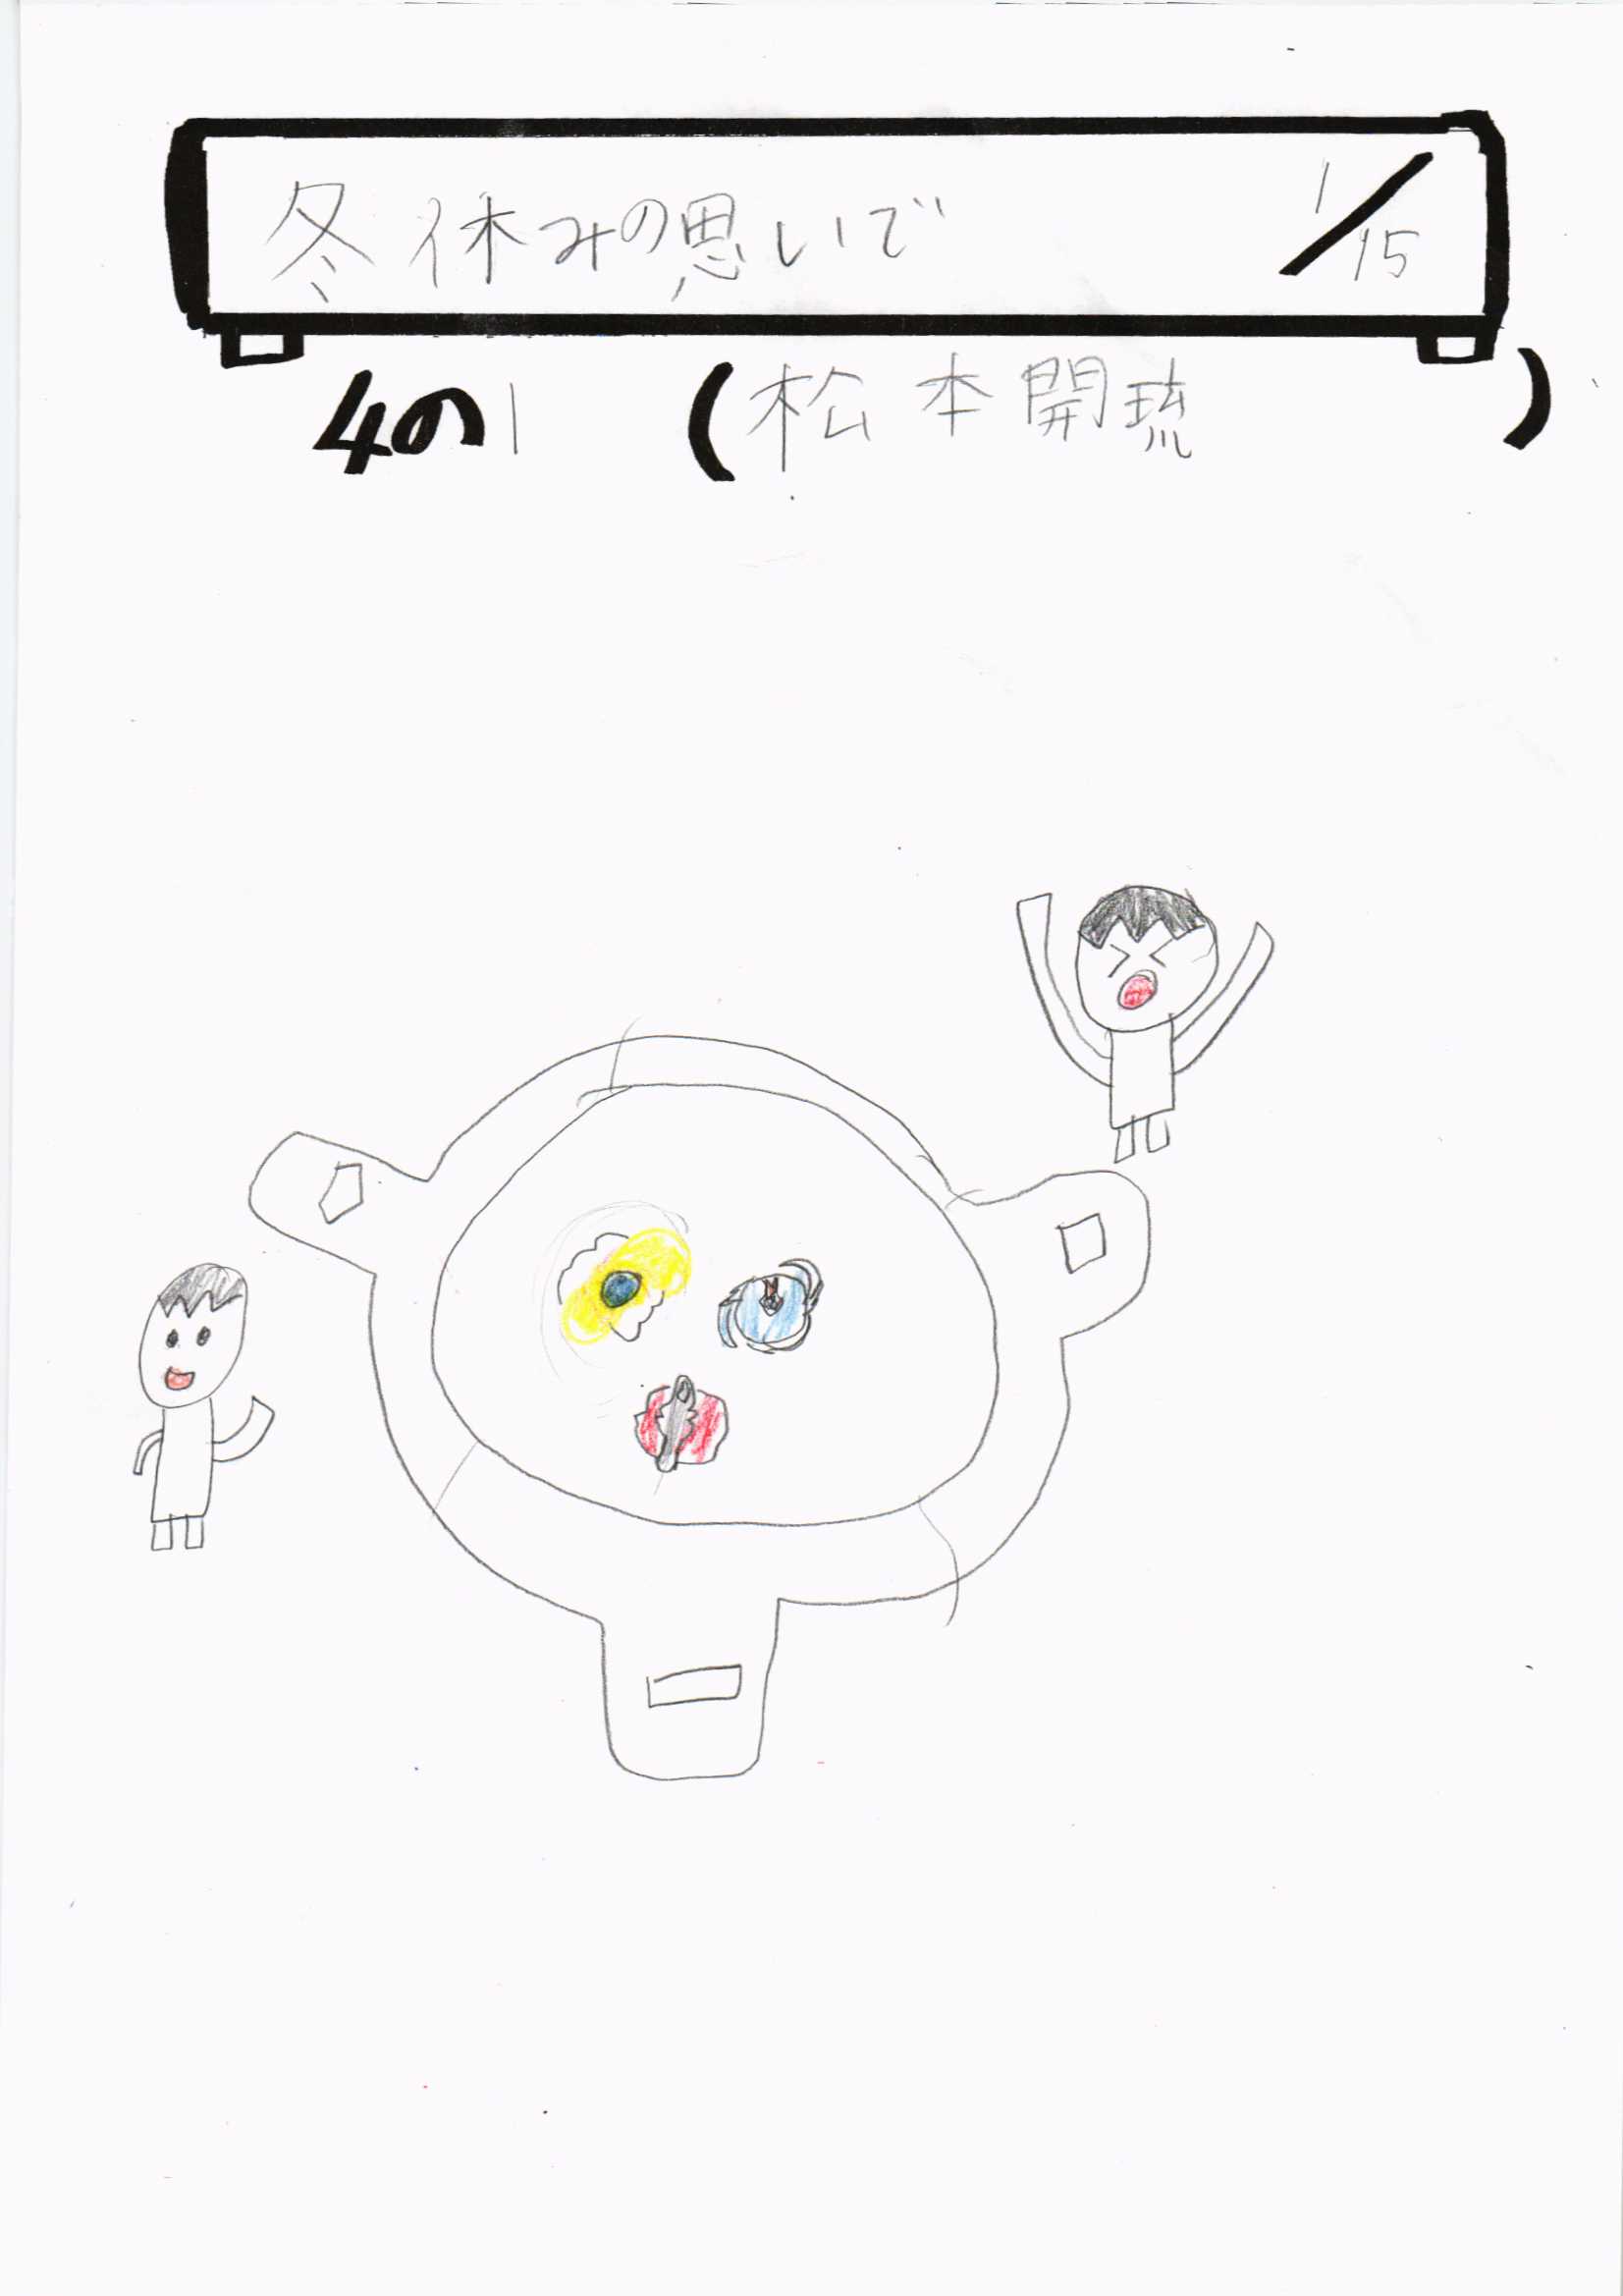 冬休みの思いで 1/15
4の1 (松本開琉)